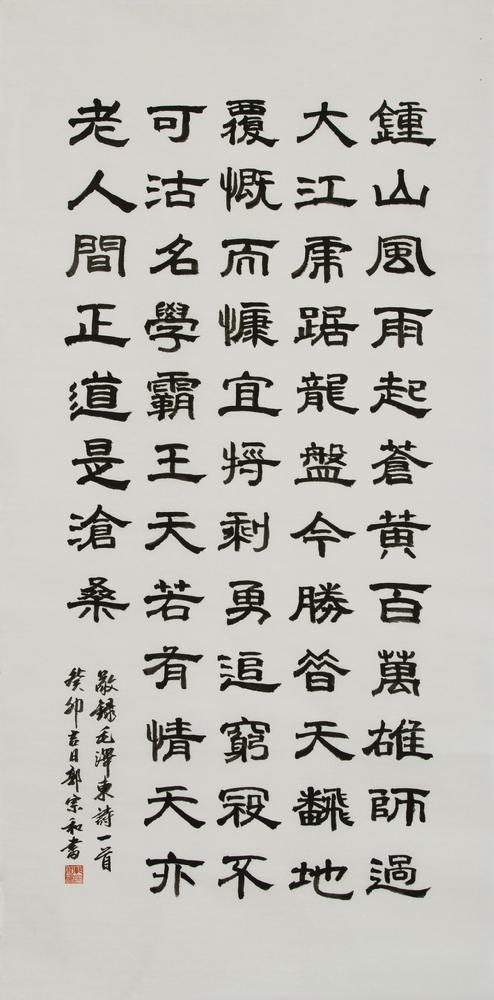 鍾山風雨起蒼黃百萬雄師過
大江虎踞龍盤今勝昔天飜地
覆慨而慷宜将剩勇追窮寇不
可沽名學霸王天若有情天亦
老人間正道是滄桑
敬録毛澤東詩一首
癸卯吉日郭宗和書